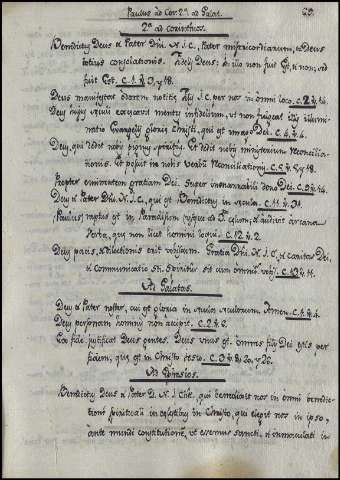 Paulus ad Cor. 2ª. ad Galat. 69.
2ª ad corinthios.
Benedictus Deus & Pater Dni. N. J. C., Pater misericordiarum, & Deus
totius consolationis. Fidelis Deus: in illo non fuit Est, & non, sed
fuit Est. C. 1. ℣. 3, y 18.
Deus manifestat odorem notitiæ filij J. C. per nos in omni loco. C. 2. ℣. 14.
Deus hujus sæculi excæcavit mentes infidelium, ut non fulgeat illis illumi-
natio Evangelij gloriæ Christi, qui est imago Dei. C. 4. ℣. 4.
Deus, qui dedit nobis pignus spiritus. Et dedit nobis ministerium reconcilia-
tionis. Et posuit in nobis verbum reconciliationis. C. 5. ℣. 5, y 18.
Propter eminentem gratiam Dei. Super inenarrabili dono Dei. C. 9. ℣. 14.
Deus & Pater Dni. N. J. C., qui est Benedictus in sæcula. C. 11. ℣. 31.
(Paulus) raptus est in Paradisum usque ad 3. cælum; & audivit arcana
verba, quæ non licet homini loqui. C. 12. ℣. 2.
Deus pacis, & dilectionis erit vobiscum. Gratia Dni. N. J. C., & caritas Dei,
& communicatio Sti. Spiritus sit cum omnibus vobis. C. 13. ℣. 11.
Ad Galatas.
Deus & Pater noster, cui est gloria in sæcula sæculorum. Amen. C. 1. ℣. 4.
Deus personam hominis non accipit. C. 2. ℣. 6.
Ex fide justificat Deus gentes. Deus unus est. omnes filij Dei estis per
fidem, quæ est in Christo Jesu. C. 3. ℣. 8, 20, y 26.
Ad Ephesios.
Benedictus Deus & Pater D. N. J. Chti., qui benedixit nos in omni benedic-
tione spirituali in cælestibus in Christo, qui elegit nos in ipso,
ante mundi constitutionem, ut essemus sancti, & immaculati in